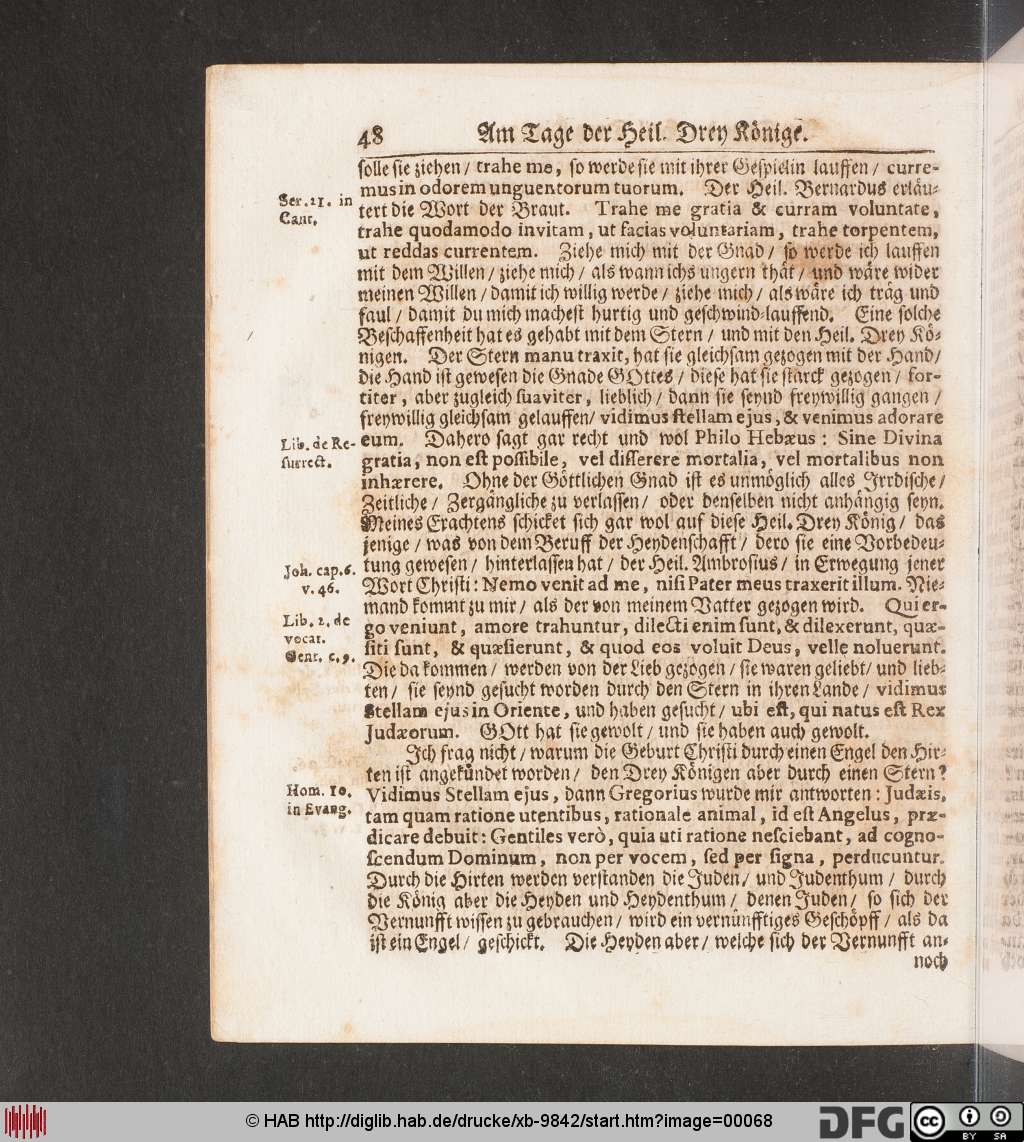 48 Am Tage der Heil. Drey Könige.
solle sie ziehen / trahe me, so werde sie mit ihrer Gespielin lauffen / curre-
mus in odorem unguentorum tuorum. Der Heil. Bernardus erläu-
Ser. 21. in
Cant.
tert die Wort der Braut. Trahe me gratia & curram voluntate,
trahe quodamodo invitam, ut facias voluntariam, trahe torpentem,
ut reddas currentem. Ziehe mich mit der Gnad / so werde ich lauffen
mit dem Willen / ziehe mich / als wann ichs ungern thät / und wäre wider
meinen Willen / damit ich willig werde / ziehe mich / als wäre ich träg und
faul / damit du mich machest hurtig und geschwind-lauffend. Eine solche
Beschaffenheit hat es gehabt mit dem Stern / und mit den Heil. Drey Kö-
nigen. Der Stern manu traxit, hat sie gleichsam gezogen mit der Hand /
die Hand ist gewesen die Gnade GOttes / diese hat sie starck gezogen / for-
titer, aber zugleich suaviter, lieblich / dann sie seynd freywillig gangen /
freywillig gleichsam gelauffen / vidimus stellam ejus, & venimus adorare
Lib. de Re-
surrect.
eum. Dahero sagt gar recht und wol Philo Hebæus: Sine Divina
gratia, non est possibile, vel disserere mortalia, vel mortalibus non
inhærere. Ohne der Göttlichen Gnad ist es unmöglich alles Irrdische /
Zeitliche / Zergängliche zu verlassen / oder denselben nicht anhängig seyn.
Meines Erachtens schicket sich gar wol auf diese Heil. Drey König / das
jenige / was von dem Beruff der Heydenschafft / dero sie eine Vorbedeu-
tung gewesen / hinterlassen hat / der Heil. Ambrosius / in Erwegung jener
Joh. cap. 6.
v. 46.
Wort Christi: Nemo venit ad me, nisi Pater meus traxerit illum. Nie-
mand kommt zu mir / als der von meinem Vatter gezogen wird. Qui er-
Lib. 2. de
vocat.
Gent. c. 9.
go veniunt, amore trahuntur, dilecti enim sunt, & dilexerunt, quæ-
siti sunt, & quæsierunt, & quod eos voluit Deus, velle noluerunt.
Die da kommen / werden von der Lieb gezogen / sie waren geliebt / und lieb-
ten / sie seynd gesucht worden durch den Stern in ihren Lande / vidimus
Stellam ejus in Oriente, und haben gesucht / ubi est, qui natus est Rex
Judæorum. GOtt hat sie gewolt / und sie haben auch gewolt.
Ich frag nicht / warum die Geburt Christi durch einen Engel den Hir-
ten ist angekündet worden / den Drey Königen aber durch einen Stern?
Hom. 10.
in Evang.
Vidimus Stellam ejus, dann Gregorius wurde mir antworten: Judæis,
tam quam ratione utentibus, rationale animal, id est Angelus, præ-
dicare debuit: Gentiles verò, quia uti ratione nesciebant, ad cogno-
scendum Dominum, non per vocem, sed per signa, perducuntur.
Durch die Hirten werden verstanden die Juden / und Judenthum / durch
die König aber die Heyden und Heydenthum / denen Juden / so sich der
Vernunfft wissen zu gebrauchen / wird ein vernünfftiges Geschöpff / als da
ist ein Engel / geschickt. Die Heyden aber / welche sich der Vernunfft an-
noch
© HAB http://diglib.hab.de/drucke/xb-9842/start.htm?image=00068
DFG
cc
BY SA